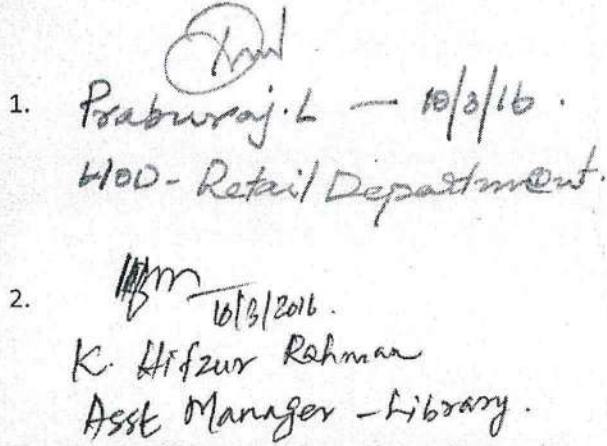 1. Praburaj.L — 10/3/16.
HOD - Retail Department.
2.
10/3/2016.
K. Hifzur Rahman
Asst Manager - Library.